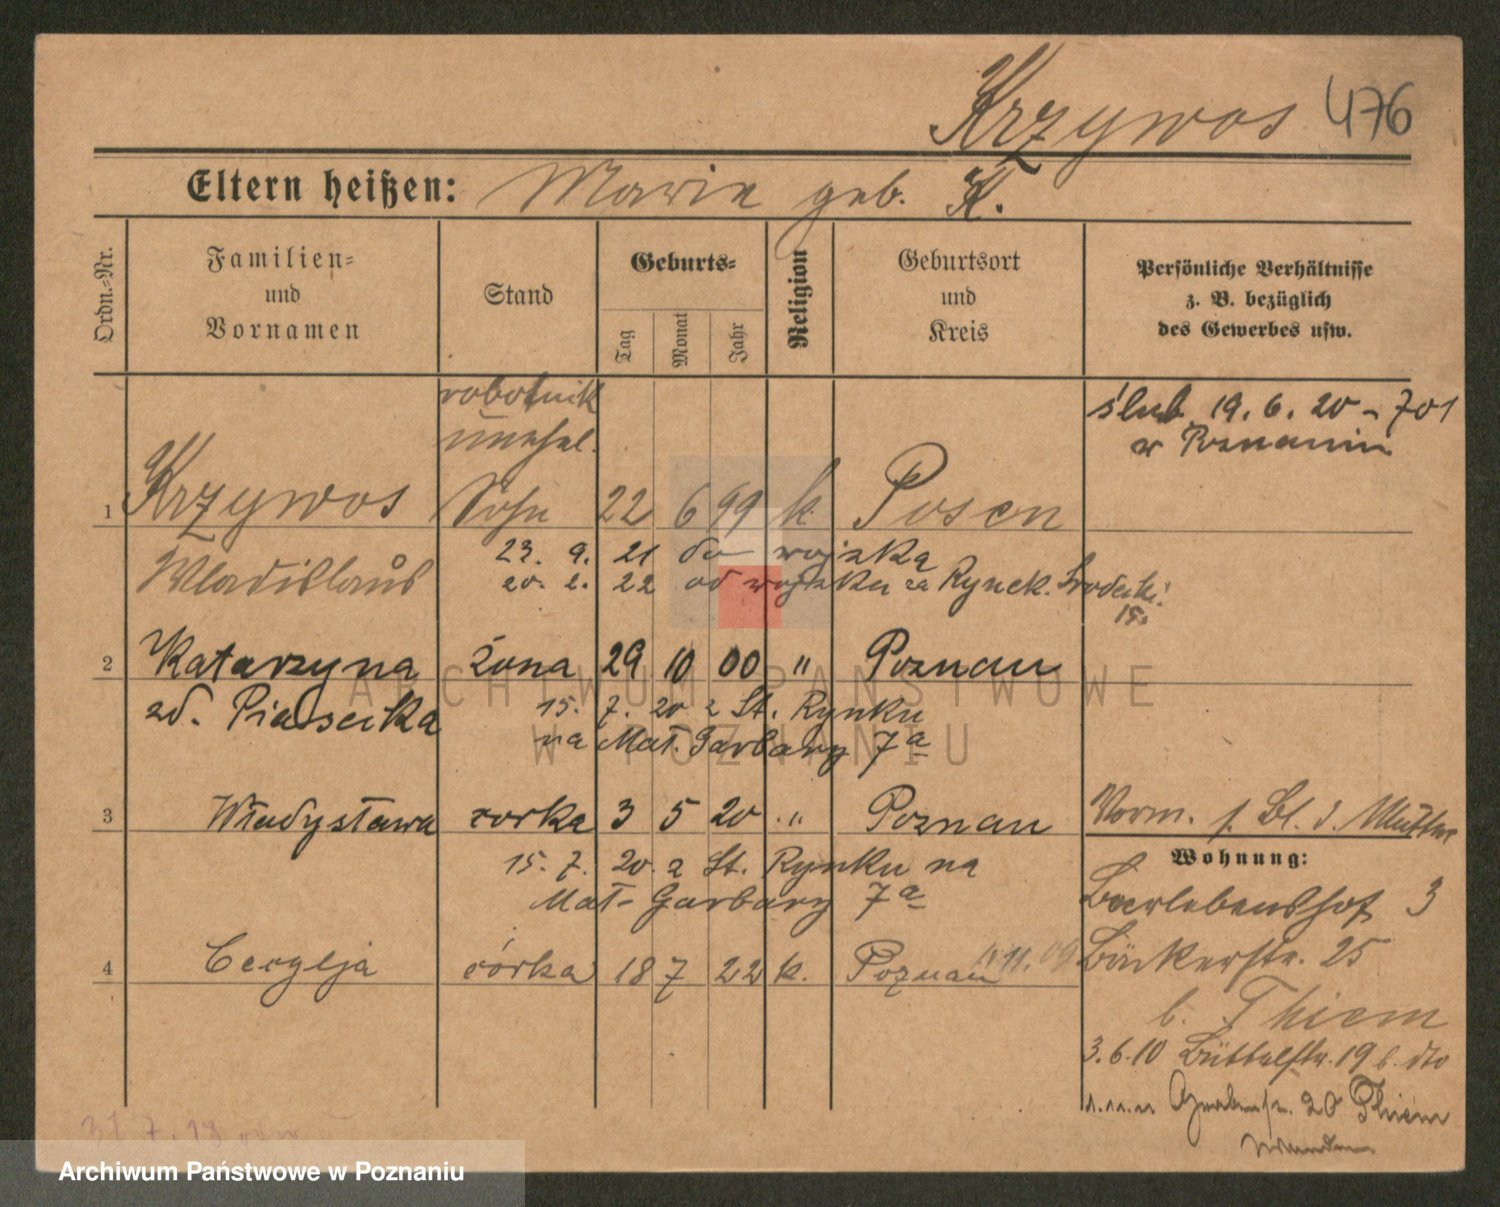 Krzywos 476
Eltern heißen: Marie geb. K.
Ordn.=Nr.
Familien=
und
Vornamen
Stand
Geburts=
Tag
Monat
Jahr
Religion
Geburtsort
und
Kreis
Persönliche Verhältnisse
z. B. bezüglich
des Gewerbes usw.
robotnik
unehel.
ślub 19. 6. 20 - 701
w Poznaniu
1 Krzywos Sohn 22 6 99 k. Posen
Wladislaus
23. 9. 21 do wojska
20. 2. 22 od wojska na Rynek. Srodecki
15.
2 Katarzyna żona 29 10 00 " Poznan
zd. Piasecka
15. 7. 20 z St. Rynku
na Mał. Garbary 7a
3 Władysława corka 3 5 20 " Poznan
Vorm. s. Bl. d. Mutter
15. 7. 20 z St. Rynku na
Mał. Garbary 7a
Wohnung:
4 Cecylja córka 18 7 22 k. Poznan
11. 09
3
Bäckerstr. 25
b. Thiem
3. 6. 10 Büttelstr. 19 b. dto
1. 11. 11 20 Thiem
31. 7. 18
ARCHIWUM PAŃSTWOWE
W POZNANIU
Archiwum Państwowe w Poznaniu